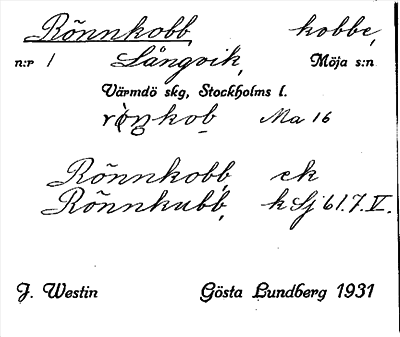 Rönnkobb kobbe,
n:r 1 Långvik, Möja s:n
Värmdö skg, Stockholms l.
Ma 16
Rönnkobb, ek
Rönnkubb, k Sj 61.7.V.
J. Westin Gösta Lundberg 1931